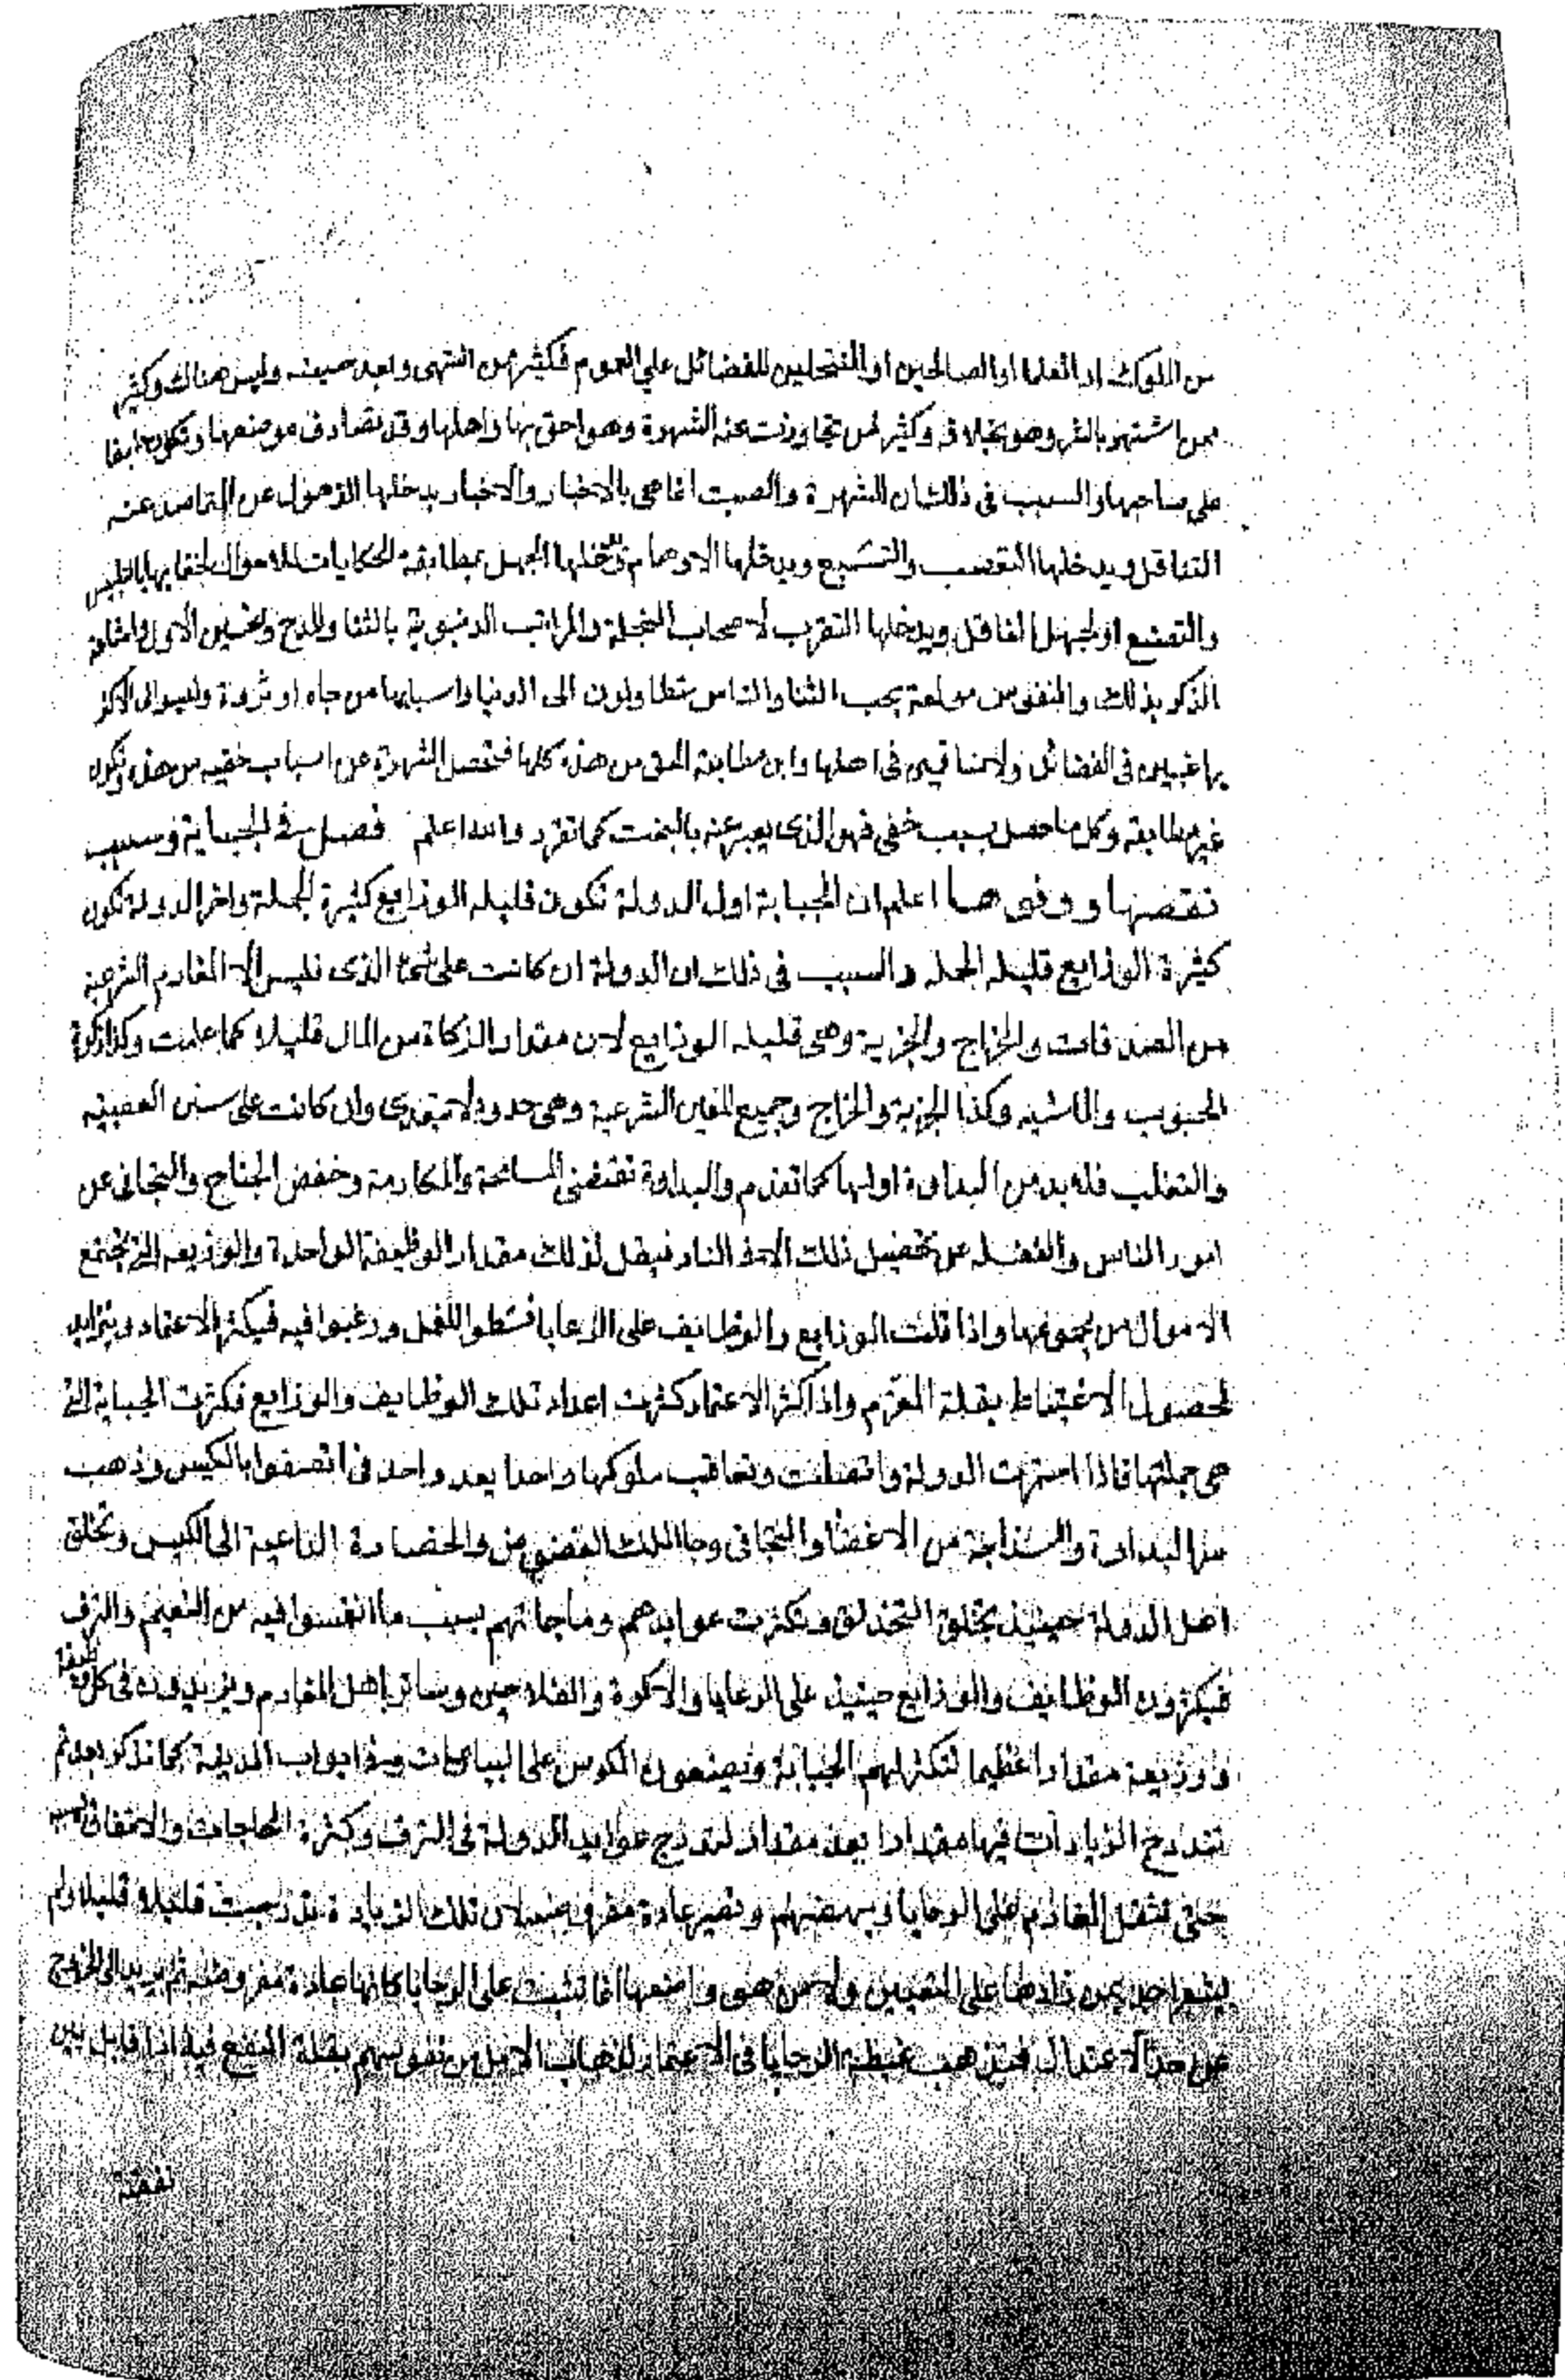 من الملوك او العلما او الصالحين او المنتحلين للفضائل علي العموم فكثير ممن اشتهر وبعد صيته وليس هنالك وكثير
ممن اشتهر بالشر وهو بخلافه وكثير ممن تجاوزت عنه الشهرة وهو احق بها واهلها وقد تصادف موضعها وتكون طبقا
على صاحبها والسبب في ذلك ان الشهرة والصيت انما هى بالاخبار والاخبار يدخلها الذهول عن المقاصد عند
التناقل ويدخلها التعصب والتشيع ويدخلها الاوهام ويدخلها الجهل بمطابقة الحكايات للاحوال لخفايها بالتلبيس
والتصنع او لجهل الناقل ويدخلها التقرب لاصحاب التجلة والمراتب الدنيوية بالثنا والمدح وتحسين الاحوال واشاعة
الذكر بذلك والنفوس مولعة بحب الثنا والناس متطاولون الى الدنيا واسبابها من جاه او ثروة وليسوا في الاكثر
براغبين في الفضائل ولا منافسين في اهلها واين مطابقة الحق من هذه كلها فتحصل الشهرة عن اسباب خفيه من هذه وتكون
غير مطابقة وكل ما حصل بسبب خفي فهو الذى يعبر عنه بالبخت كما تقرر والله اعلم فصل في الجباية وسبب
نقصها ووفورها اعلم ان الجباية اول الدولة تكون قليلة الوزايع كثيرة الجملة واخر الدولة تكون
كثيرة الوزايع قليلة الجملة والسبب في ذلك ان الدولة ان كانت على الدين فليس الا المغارم الشرعية
من الصدقات والخراج والجزية وهى قليلة الوزايع لان مقدار الزكاة من المال قليل كما علمت وكذا زكاة
الحبوب والماشية وكذا الجزية والخراج وجميع المغارم الشرعية وهى حدود لا تتعدى وان كانت على سنن العصبية
والتغلب فلا بد من البداوة اولها كما تقدم والبداوة تقتضي المسامحة والمكارمة وخفض الجناح والتجافى عن
امور الناس والغفلة عن تحصيل ذلك الا في النادر فيقل لذلك مقدار الوظيفة الواحدة والوزيعة التي تجتمع
الاموال من مجموعها واذا قلت الوزايع والوظايف على الرعايا نشطوا للعمل ورغبوا فيه فيكثر الاعتمار ويتزايد
لحصول الاغتباط بقلة المغرم واذا كثر الاعتمار كثرت اعداد تلك الوظايف والوزايع فكثرت الجباية التي
هى جملتها فاذا استمرت الدولة واتصلت وتعاقب ملوكها واحدا بعد واحد واتصفوا بالكيس وذهب
سر البداوة والسذاجة من الاغضا والتجافى وجا الملك العضوض والحضارة الداعية الى الكيس وتخلق
اهل الدولة حينيذ بخلق التحذلق وتكثرت عوايدهم وحاجاتهم بسبب ما انغمسوا فيه من النعيم والترف
فيكثرون الوظايف والوزايع حينيذ على الرعايا والاكرة والفلاحين وساير اهل المغارم ويزيدون في كل وظيفة
ووزيعة مقدارا عظيما لتكثر لهم الجباية ويضعون المكوس على البياعات وفي ابواب المدينة كما نذكر بعد ثم
تتدرج الزيادات فيها مقدارا بعد مقدار لتدرج عوايد الدولة في الترف وكثرة الحاجات والانفاق بسببه
حتى تثقل المغارم على الرعايا وتهضمهم وتصير عادة مفروضة لان تلك الزيادة تدرجت قليلا قليلا ولم
يشعر احد بمن زادها على التعيين ولا من هو واضعها انما تثبت على الرعايا كانها عادة مفروضة ثم تزيد الى الخروج
عن حد الاعتدال فتذهب غبطة الرعايا في الاعتمار لذهاب الامل من نفوسهم بقلة النفع فيه اذا قابل بين
نفقته